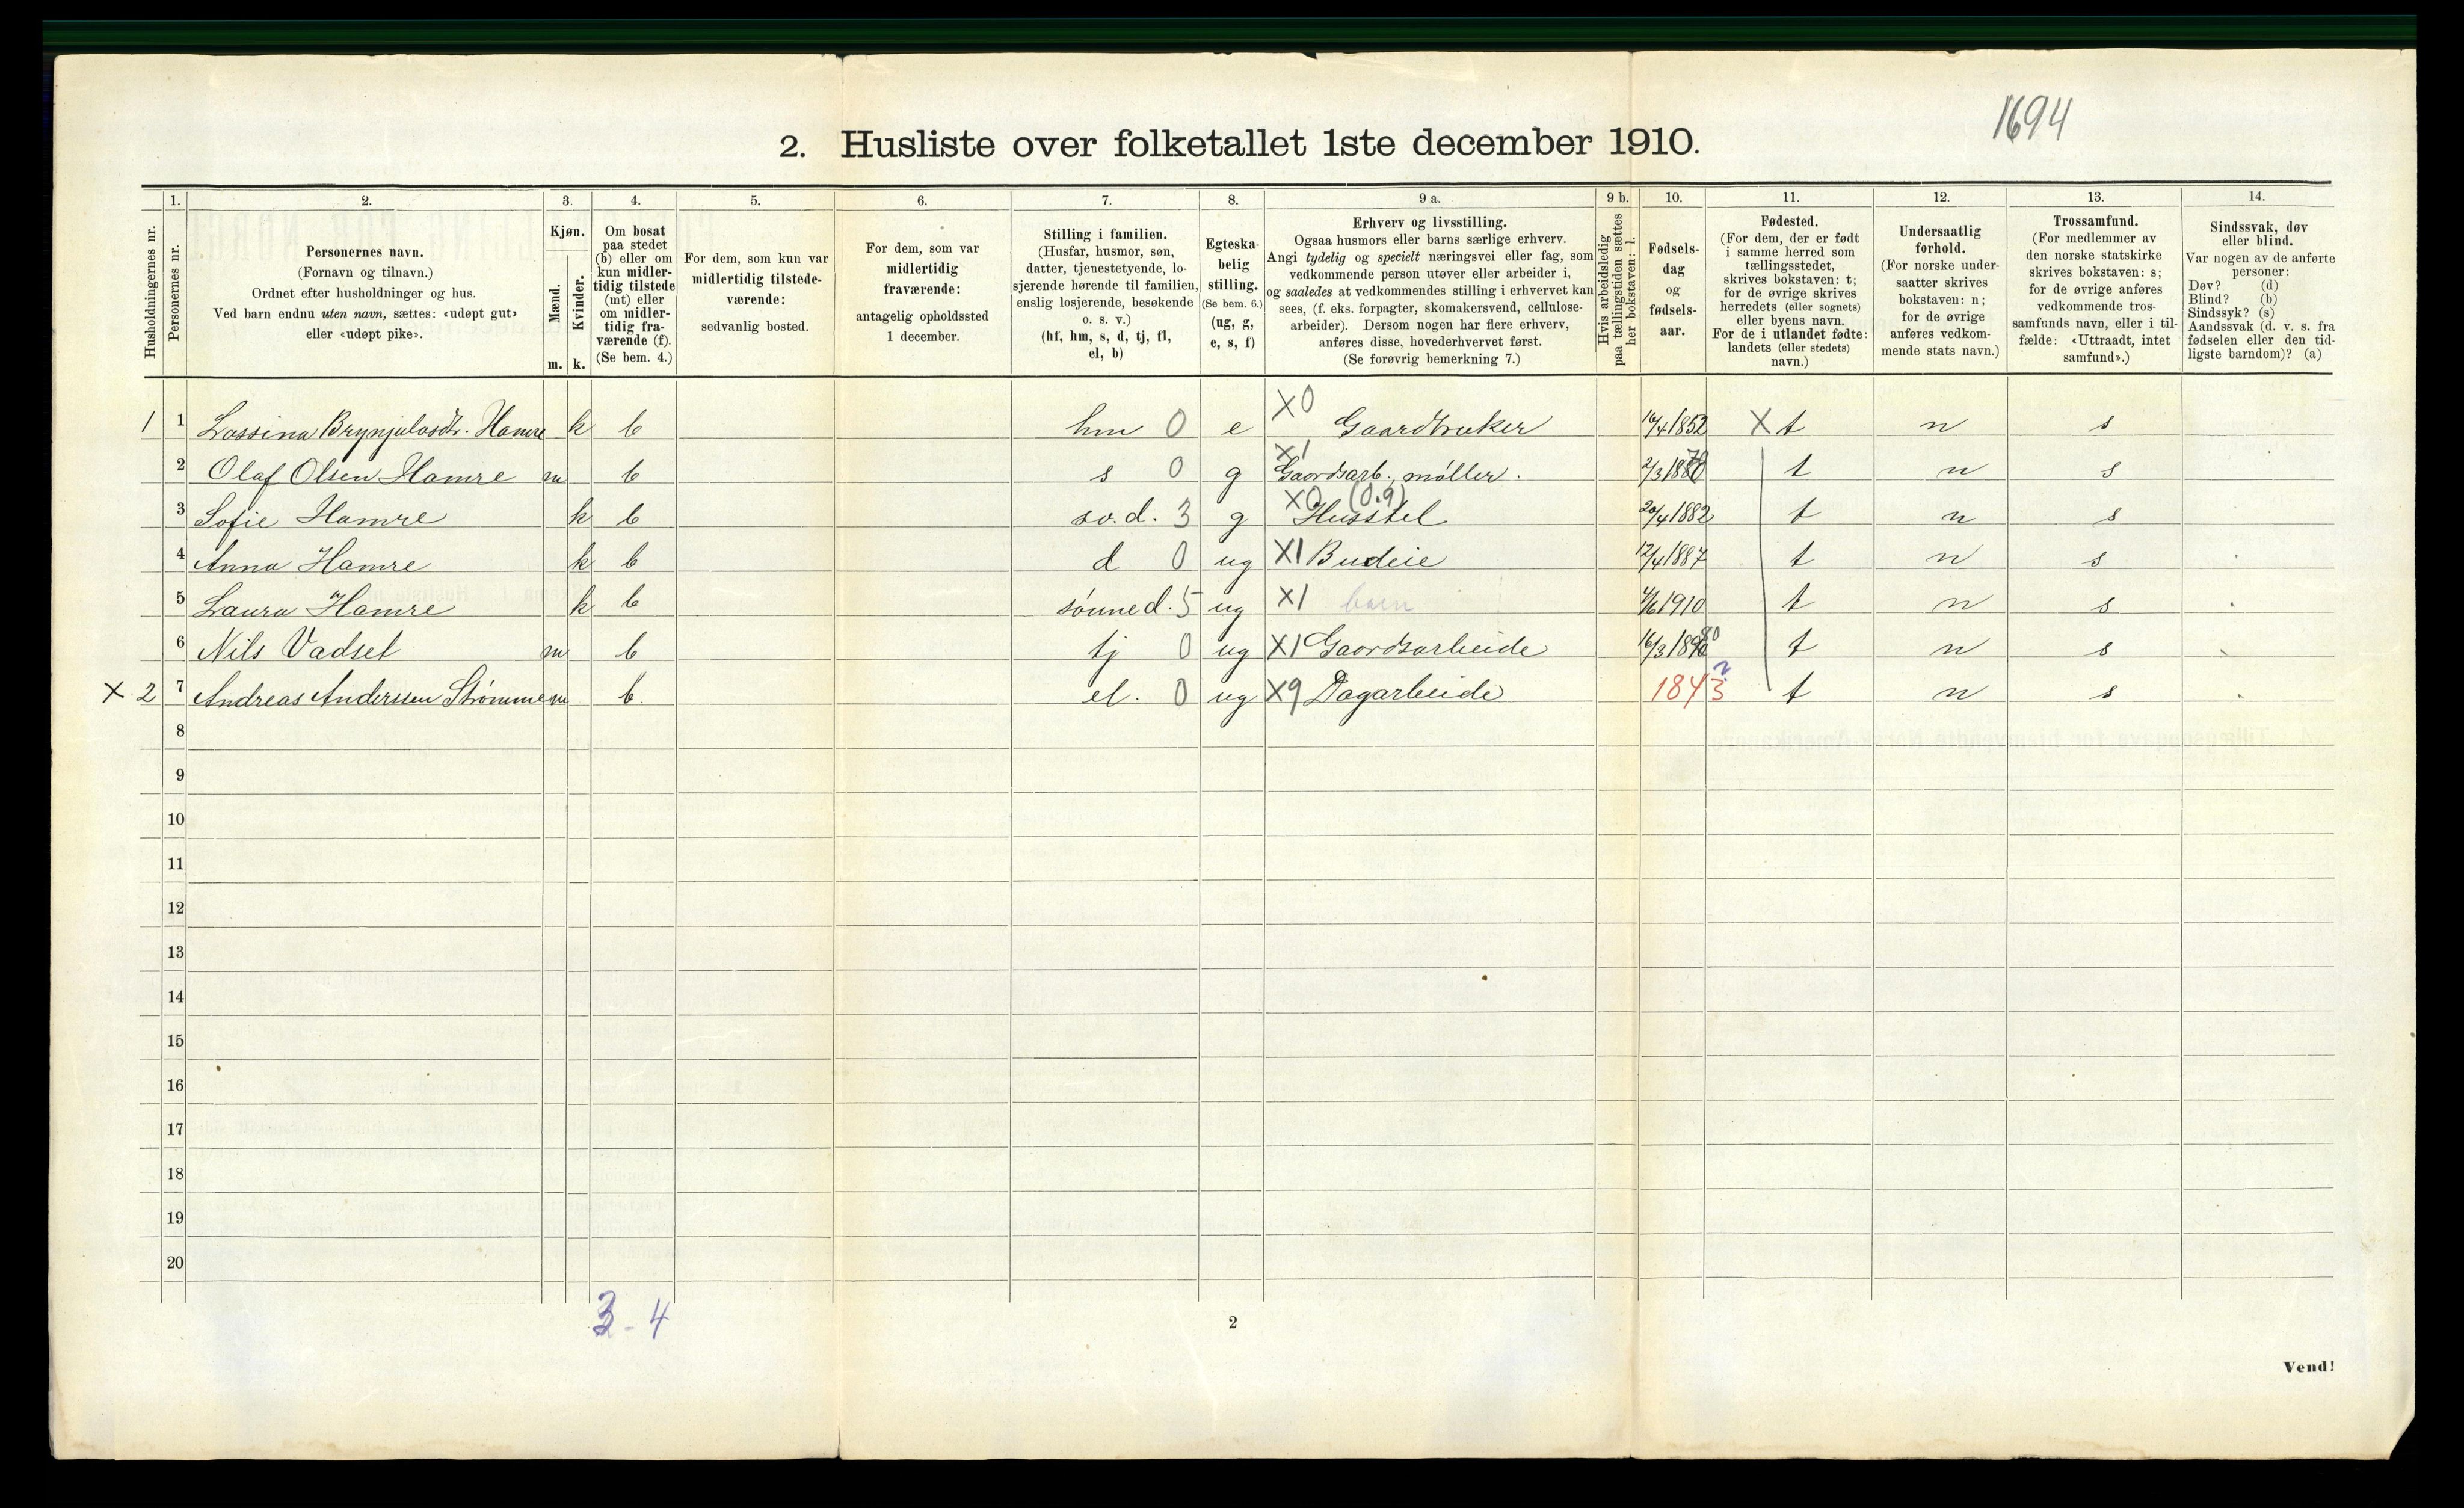 1694
2. Husliste over folketallet 1ste december 1910.
Husholdningernes nr.
1.
Personernes nr.
2.
Personernes navn.
(Fornavn og tilnavn.)
Ordnet efter husholdninger og hus.
Ved barn endnu uten navn, sættes: «udøpt gut»
eller «udøpt pike».
3.
Kjøn.
Mænd.
Kvinder.
m. k.
4.
Om bosat
paa stedet
(b) eller om
kun midler-
tidig tilstede
(mt) eller
om midler-
tidig fra-
værende (f).
(Se bem. 4.)
5.
For dem, som kun var
midlertidig tilstede-
værende:
sedvanlig bosted.
6.
For dem, som var
midlertidig
fraværende:
antagelig opholdssted
1 december.
7.
Stilling i familien.
(Husfar, husmor, søn,
datter, tjenestetyende, lo-
sjerende hørende til familien,
enslig losjerende, besøkende
o. s. v.)
(hf, hm, s, d, tj, fl,
el, b)
8.
Egteska-
belig
stilling.
(Se bem. 6.)
(ug, g,
e, s, f)
9 a.
Erhverv og livsstilling.
Ogsaa husmors eller barns særlige erhverv.
Angi tydelig og specielt næringsvei eller fag, som
vedkommende person utøver eller arbeider i,
og saaledes at vedkommendes stilling i erhvervet kan
sees, (f. eks. forpagter, skomakersvend, cellulose-
arbeider). Dersom nogen har flere erhverv,
anføres disse, hovederhvervet først.
(Se forøvrig bemerkning 7.)
9 b.
Hvis arbeidsledig
paa tællingstiden sættes
her bokstaven: l.
10.
Fødsels-
dag
og
fødsels-
aar.
11.
Fødested.
(For dem, der er født
i samme herred som
tællingsstedet,
skrives bokstaven: t;
for de øvrige skrives
herredets (eller sognets)
eller byens navn.
For de i utlandet fødte:
landets (eller stedets)
navn.)
12.
Undersaatlig
forhold.
(For norske under-
saatter skrives
bokstaven: n;
for de øvrige
anføres vedkom-
mende stats navn.)
13.
Trossamfund.
(For medlemmer av
den norske statskirke
skrives bokstaven: s;
for de øvrige anføres
vedkommende tros-
samfunds navn, eller i til-
fælde: «Uttraadt, intet
samfund».)
14.
Sindssvak, døv
eller blind.
Var nogen av de anførte
personer:
Døv? (d)
Blind? (b)
Sindssyk? (s)
Aandssvak (d. v. s. fra
fødselen eller den tid-
ligste barndom)? (a)
1 1 Lossina Brynjulvsdtr. Hamre k b hm 0 e X0 Gaardbruker 16/4 1852 X t n s
2 Olaf Olsen Hamre m b s 0 g X1 Gaardsarb., møller. 2/3 1880 79 t n s
3 Sofie Hamre k b sv. d. 3 g X0 (0.9) Husstel 20/4 1882 t n s
4 Anna Hamre k b d 0 ug X1 Budeie 12/4 1887 t n s
5 Laura Hamre k b sønned. 5 ug X1 barn 4/6 1910 t n s
6 Nils Vadset m b tj 0 ug X1 Gaardsarbeide 16/3 1890 80 t n s
X 2 7 Andreas Anderssen Strømme m b. el. 0 ug X9 Dagarbeide 1843 2 t n s
8
9
10
11
12
13
14
15
16
17
18
19
20
3 - 4
2
Vend!